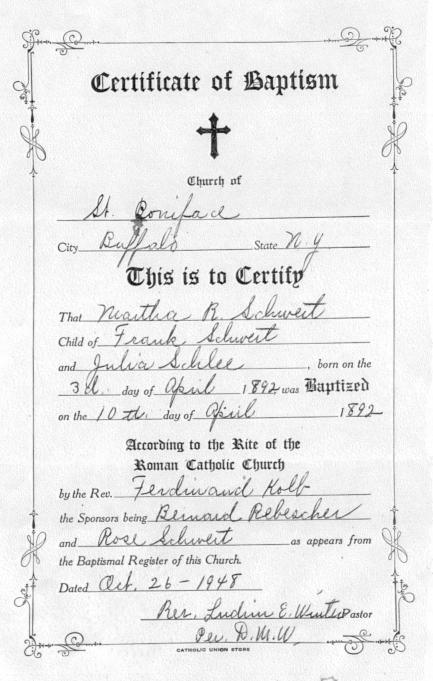 Certificate of Baptism
Church of
St. Boniface
City Buffalo State N.Y
This is to Certify
That Martha R. Schweit
Child of Frank Schweit
and Julia Schlee, born on the
3d. day of April 1892 was Baptized
on the 10th. day of April 1892
According to the Rite of the
Roman Catholic Church
by the Rev. Ferdinand Kolb
the Sponsors being Bernard Rebescher
and Rose Schweit as appears from
the Baptismal Register of this Church.
Dated Oct. 26-1948
Rev. E. Winter Pastor
Per. D.M.W.
CATHOLIC UNION STORE